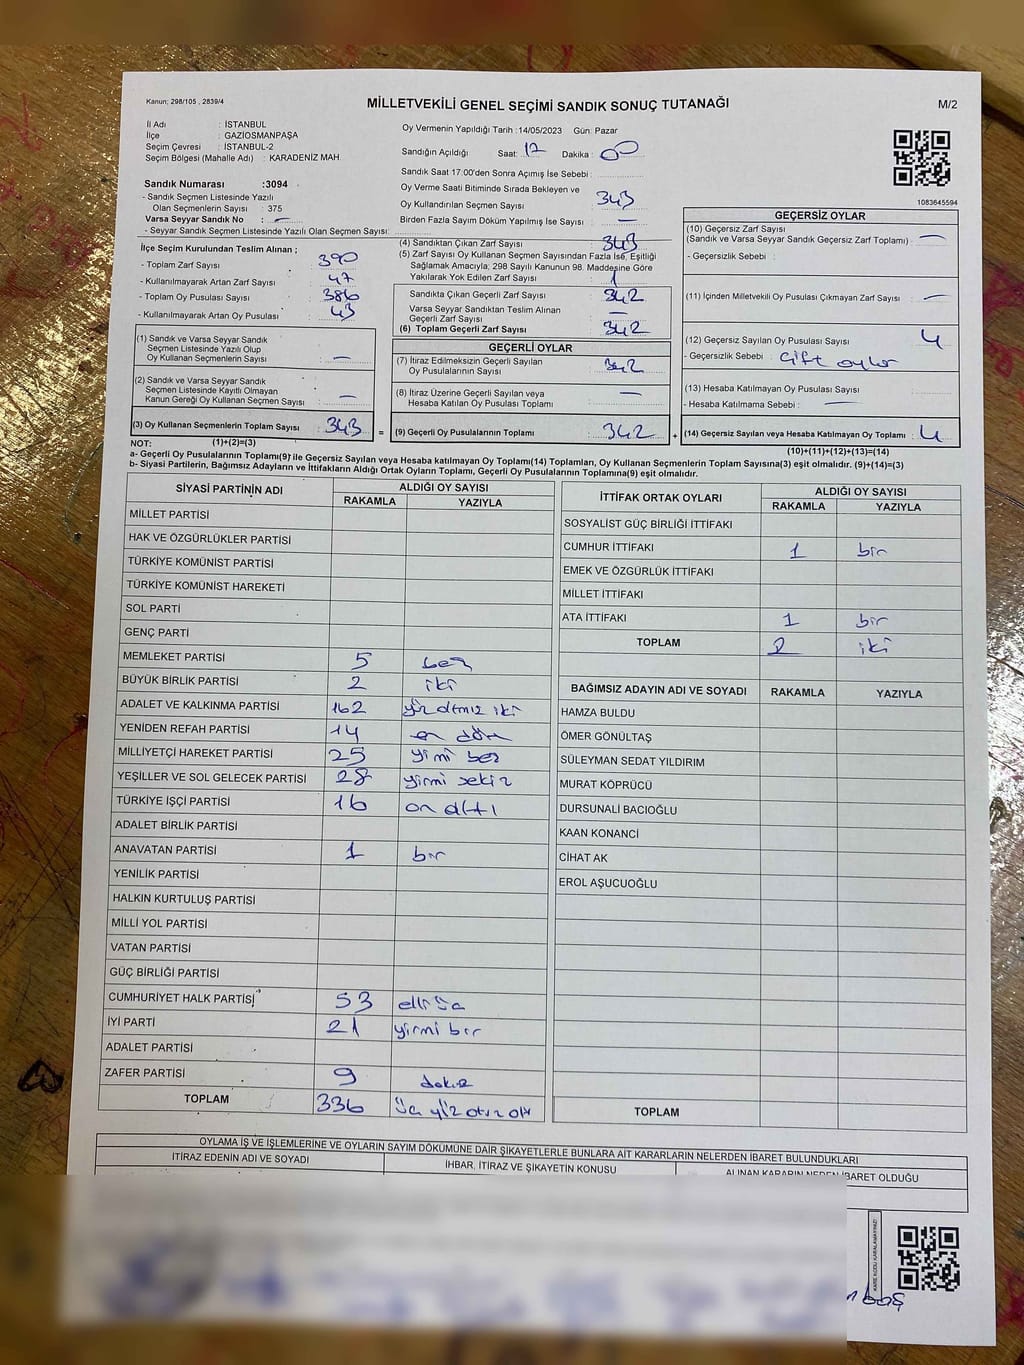 Kanun; 298/105 , 2839/4
MİLLETVEKİLİ GENEL SEÇİMİ SANDIK SONUÇ TUTANAĞI
M/2
İl Adı : İSTANBUL
İlçe : GAZİOSMANPAŞA
Seçim Çevresi : İSTANBUL-2
Seçim Bölgesi (Mahalle Adı) : KARADENİZ MAH.
Sandık Numarası :3094
- Sandık Seçmen Listesinde Yazılı
Olan Seçmenlerin Sayısı : 375
Varsa Seyyar Sandık No : —
- Seyyar Sandık Seçmen Listesinde Yazılı Olan Seçmen Sayısı:
Oy Vermenin Yapıldığı Tarih :14/05/2023 Gün: Pazar
Sandığın Açıldığı Saat: 17 Dakika : 00
Sandık Saat 17:00'den Sonra Açımış İse Sebebi :
Oy Verme Saati Bitiminde Sırada Bekleyen ve
Oy Kullandırılan Seçmen Sayısı : 343
Birden Fazla Sayım Döküm Yapılmış İse Sayısı : —
1083645594
İlçe Seçim Kurulundan Teslim Alınan ;
- Toplam Zarf Sayısı : 390
- Kullanılmayarak Artan Zarf Sayısı : 47
- Toplam Oy Pusulası Sayısı : 386
- Kullanılmayarak Artan Oy Pusulası : 43
(1) Sandık ve Varsa Seyyar Sandık
Seçmen Listesinde Yazılı Olup
Oy Kullanan Seçmenlerin Sayısı : —
(2) Sandık ve Varsa Seyyar Sandık
Seçmen Listesinde Kayıtlı Olmayan
Kanun Gereği Oy Kullanan Seçmen Sayısı : —
(3) Oy Kullanan Seçmenlerin Toplam Sayısı : 343 =
(4) Sandıktan Çıkan Zarf Sayısı : 343
(5) Zarf Sayısı Oy Kullanan Seçmen Sayısından Fazla İse, Eşitliği
Sağlamak Amacıyla; 298 Sayılı Kanunun 98. Maddesine Göre
Yakılarak Yok Edilen Zarf Sayısı : 1
Sandıkta Çıkan Geçerli Zarf Sayısı : 342
Varsa Seyyar Sandıktan Teslim Alınan
Geçerli Zarf Sayısı : —
(6) Toplam Geçerli Zarf Sayısı : 342
GEÇERLİ OYLAR
(7) İtiraz Edilmeksizin Geçerli Sayılan
Oy Pusulalarının Sayısı : 342
(8) İtiraz Üzerine Geçerli Sayılan veya
Hesaba Katılan Oy Pusulası Toplamı : —
(9) Geçerli Oy Pusulalarının Toplamı : 342 +
GEÇERSİZ OYLAR
(10) Geçersiz Zarf Sayısı
(Sandık ve Varsa Seyyar Sandık Geçersiz Zarf Toplamı) : —
- Geçersizlik Sebebi :
(11) İçinden Milletvekili Oy Pusulası Çıkmayan Zarf Sayısı : —
(12) Geçersiz Sayılan Oy Pusulası Sayısı : 4
- Geçersizlik Sebebi : Çift oylar
(13) Hesaba Katılmayan Oy Pusulası Sayısı :
- Hesaba Katılmama Sebebi : —
(14) Geçersiz Sayılan veya Hesaba Katılmayan Oy Toplamı : 4
NOT: (1)+(2)=(3)
(10)+(11)+(12)+(13)=(14)
a- Geçerli Oy Pusulalarının Toplamı(9) ile Geçersiz Sayılan veya Hesaba katılmayan Oy Toplamı(14) Toplamları, Oy Kullanan Seçmenlerin Toplam Sayısına(3) eşit olmalıdır. (9)+(14)=(3)
b- Siyasi Partilerin, Bağımsız Adayların ve İttifakların Aldığı Ortak Oyların Toplamı, Geçerli Oy Pusulalarının Toplamına(9) eşit olmalıdır.
SİYASİ PARTİNİN ADI ALDIĞI OY SAYISI
RAKAMLA YAZIYLA
MİLLET PARTİSİ
HAK VE ÖZGÜRLÜKLER PARTİSİ
TÜRKİYE KOMÜNİST PARTİSİ
TÜRKİYE KOMÜNİST HAREKETİ
SOL PARTİ
GENÇ PARTİ
MEMLEKET PARTİSİ 5 beş
BÜYÜK BİRLİK PARTİSİ 2 iki
ADALET VE KALKINMA PARTİSİ 162 yüz altmış iki
YENİDEN REFAH PARTİSİ 14 on dört
MİLLİYETÇİ HAREKET PARTİSİ 25 yirmi beş
YEŞİLLER VE SOL GELECEK PARTİSİ 28 yirmi sekiz
TÜRKİYE İŞÇİ PARTİSİ 16 on altı
ADALET BİRLİK PARTİSİ
ANAVATAN PARTİSİ 1 bir
YENİLİK PARTİSİ
HALKIN KURTULUŞ PARTİSİ
MİLLİ YOL PARTİSİ
VATAN PARTİSİ
GÜÇ BİRLİĞİ PARTİSİ
CUMHURİYET HALK PARTİSİ 53 elli üç
İYİ PARTİ 21 yirmi bir
ADALET PARTİSİ
ZAFER PARTİSİ 9 dokuz
TOPLAM 336 üç yüz otuz altı
İTTİFAK ORTAK OYLARI ALDIĞI OY SAYISI
RAKAMLA YAZIYLA
SOSYALİST GÜÇ BİRLİĞİ İTTİFAKI
CUMHUR İTTİFAKI 1 bir
EMEK VE ÖZGÜRLÜK İTTİFAKI
MİLLET İTTİFAKI
ATA İTTİFAKI 1 bir
TOPLAM 2 iki
BAĞIMSIZ ADAYIN ADI VE SOYADI RAKAMLA YAZIYLA
HAMZA BULDU
ÖMER GÖNÜLTAŞ
SÜLEYMAN SEDAT YILDIRIM
MURAT KÖPRÜCÜ
DURSUNALİ BACIOĞLU
KAAN KONANCİ
CİHAT AK
EROL AŞUCUOĞLU
TOPLAM
OYLAMA İŞ VE İŞLEMLERİNE VE OYLARIN SAYIM DÖKÜMÜNE DAİR ŞİKAYETLERLE BUNLARA AİT KARARLARIN NELERDEN İBARET BULUNDUKLARI
İTİRAZ EDENİN ADI VE SOYADI İHBAR, İTİRAZ VE ŞİKAYETİN KONUSU ALINAN KARARIN NEDEN İBARET OLDUĞU
KARE KODU KARALAMAYINIZ!